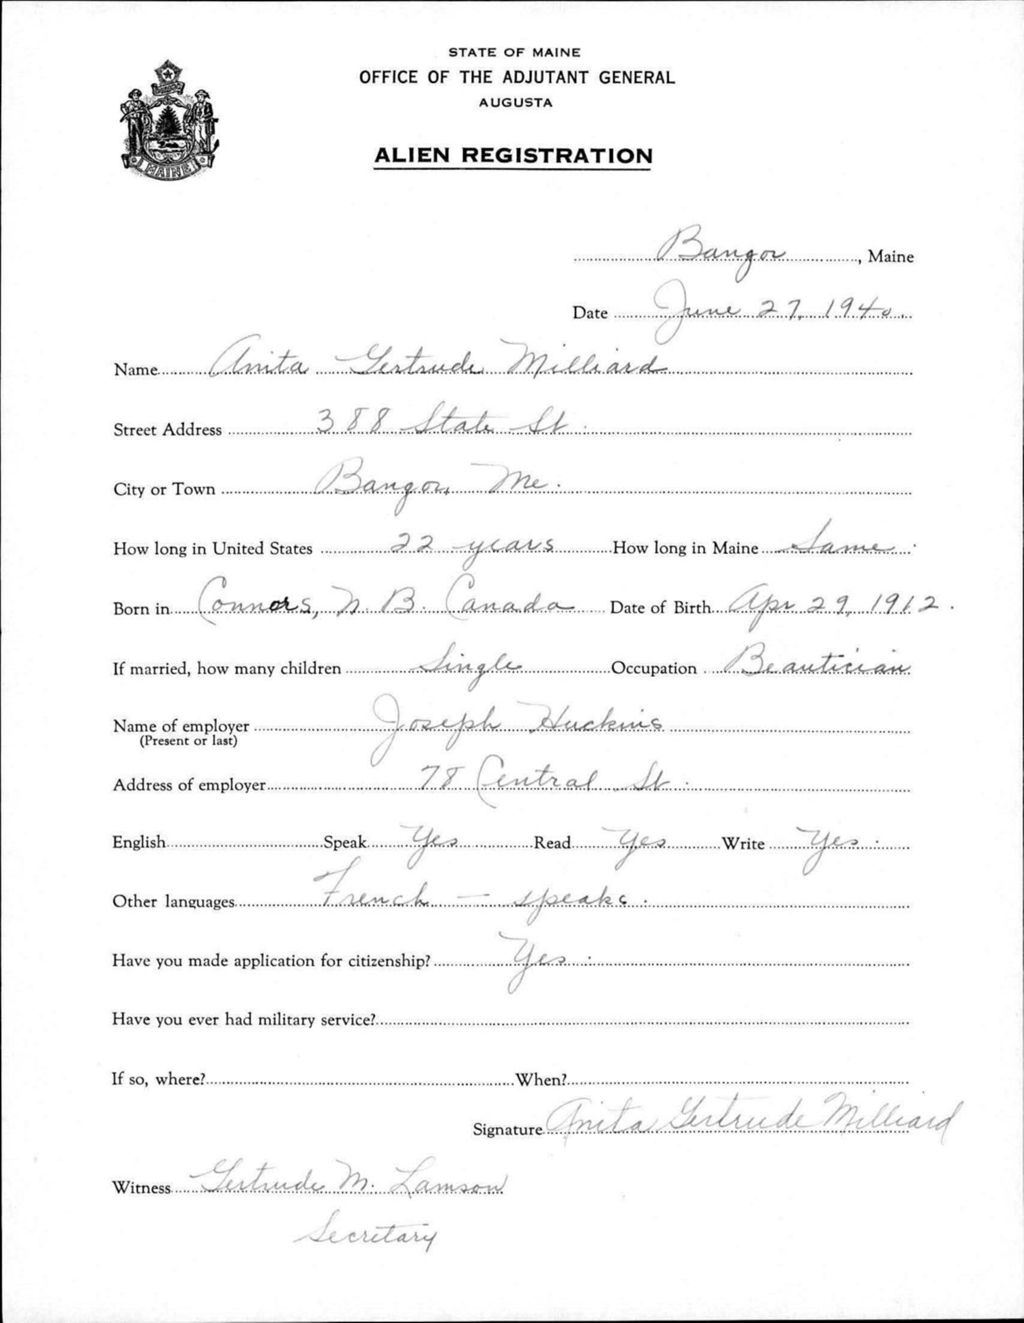 STATE OF MAINE
OFFICE OF THE ADJUTANT GENERAL
AUGUSTA
ALIEN REGISTRATION
MAINE
Bangor, Maine
Date June 27, 1940
Name Anita Gertrude Milliard
Street Address 388 State St.
City or Town Bangor, Me.
How long in United States 22 years How long in Maine Same
Born in Connors, N. B. Canada Date of Birth Apr 29, 1912.
If married, how many children Single Occupation Beautician
Name of employer Joseph Huckins
(Present or last)
Address of employer 78 Central St.
English Speak Yes Read Yes Write Yes.
Other languages French — speaks.
Have you made application for citizenship? Yes.
Have you ever had military service?
If so, where? When?
Signature Anita Gertrude Milliard
Witness Gertrude M. Lamson
Secretary